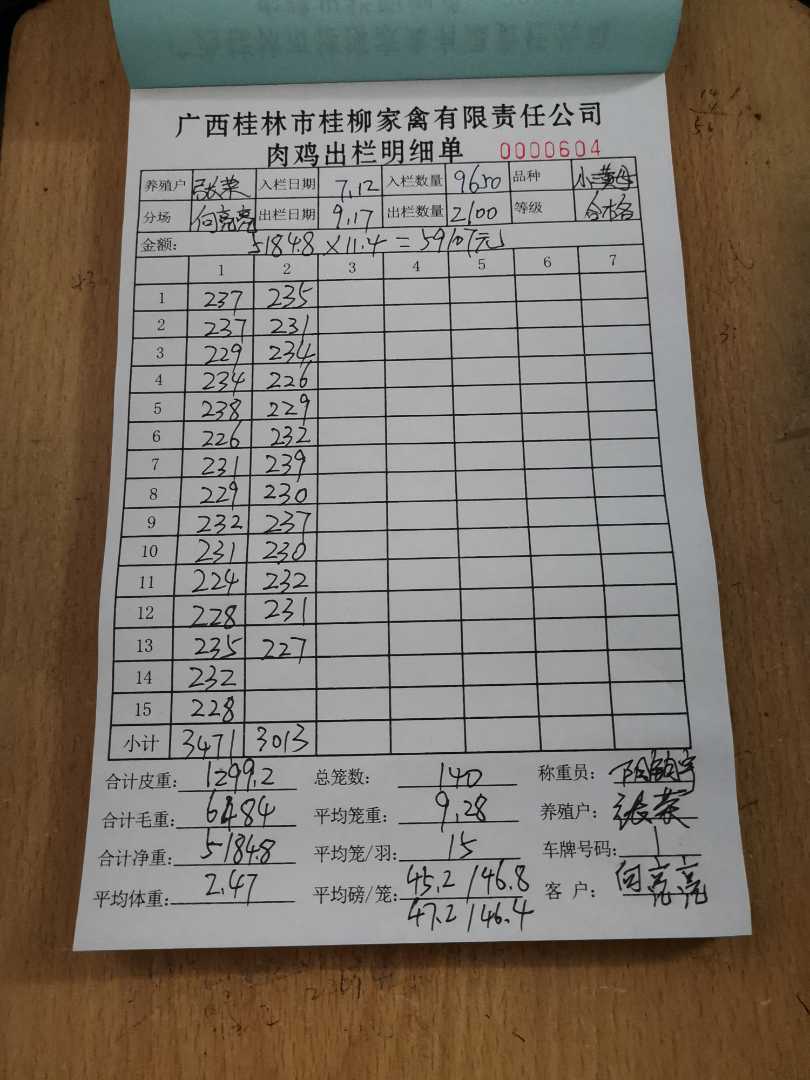 广西桂林市桂柳家禽有限责任公司
肉鸡出栏明细单 0000604
养殖户 张荣 入栏日期 7.12 入栏数量 9650 品种 小黄母
分场 向亮亮 出栏日期 9.17 出栏数量 2100 等级 合格
金额: 5184.8×11.4=59107元
1 2 3 4 5 6 7
1 237 235
2 237 231
3 229 234
4 234 226
5 238 229
6 226 232
7 231 239
8 229 230
9 232 237
10 231 230
11 224 232
12 228 231
13 235 227
14 232
15 228
小计 3471 3013
合计皮重: 1299.2 总笼数: 140 称重员:
合计毛重: 6484 平均笼重: 9.28 养殖户: 张荣
合计净重: 5184.8 平均笼/羽: 15 车牌号码: 1
平均体重: 2.47 平均磅/笼: 45.2/46.8 客户: 向亮亮
47.2/46.4